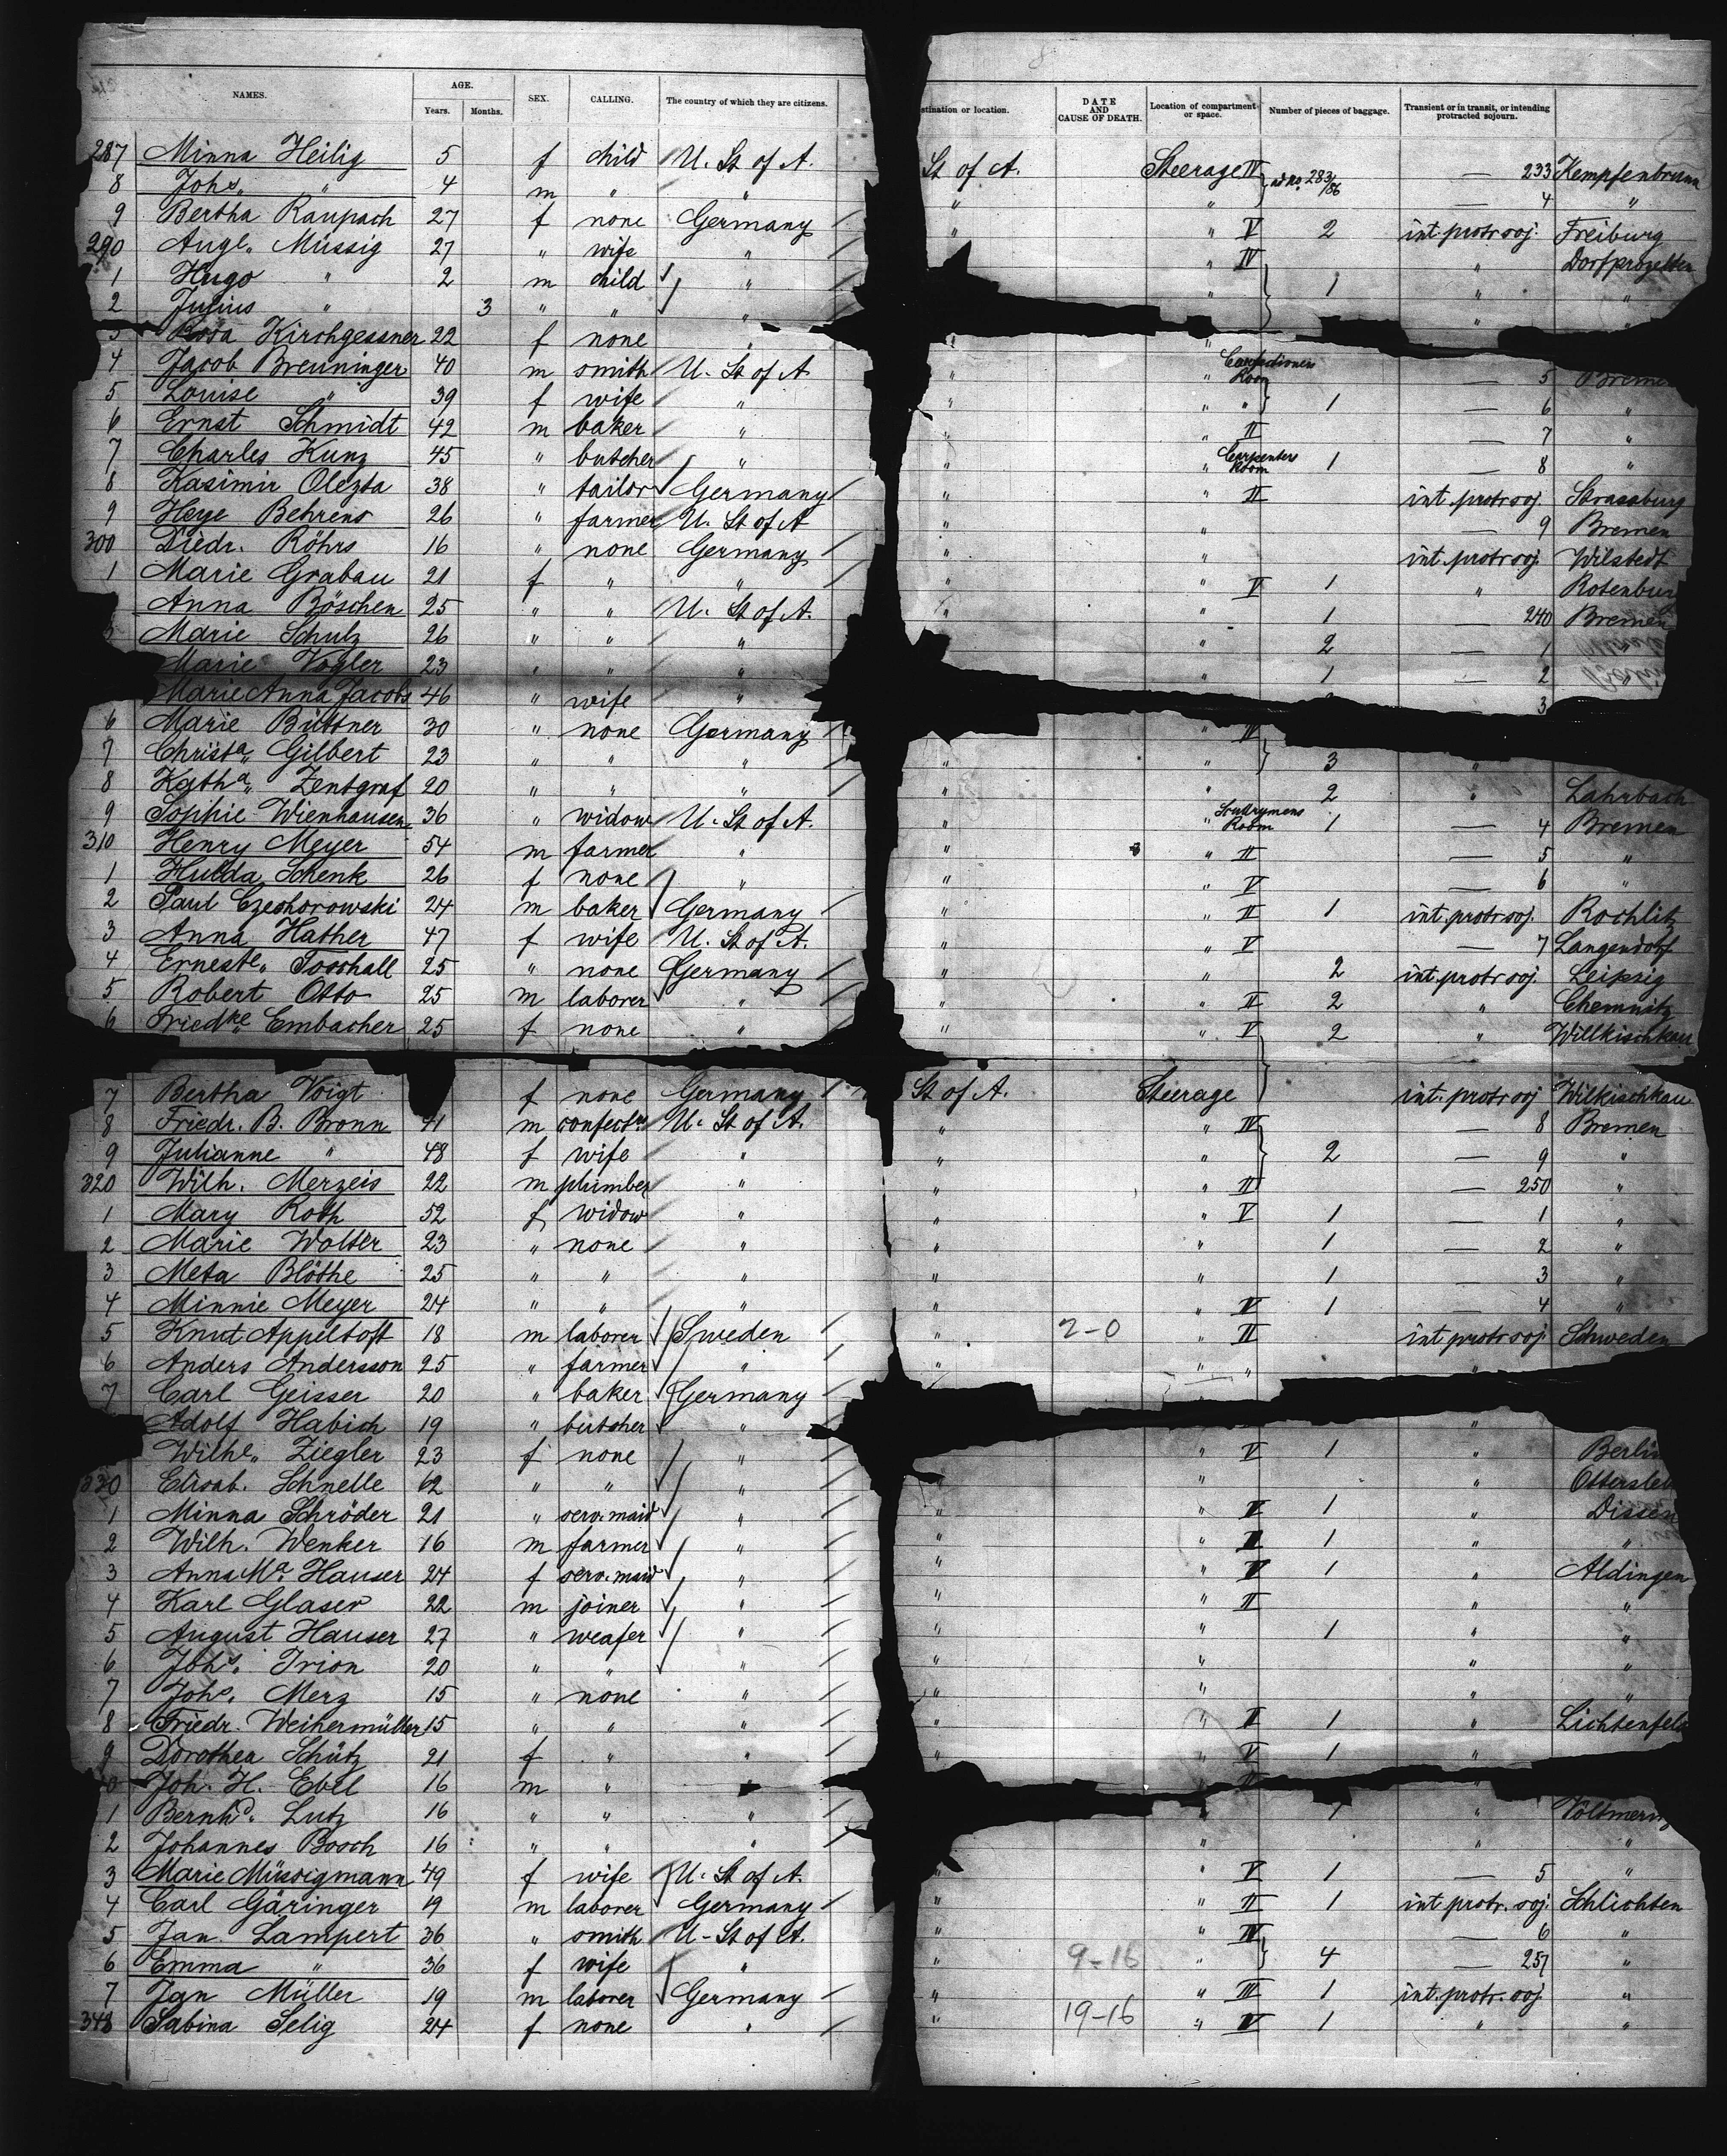 NAMES. AGE. Years. Months. SEX. CALLING. The country of which they are citizens. stination or location. DATE AND CAUSE OF DEATH. Location of compartment or space. Number of pieces of baggage. Transient or in transit, or intending protracted sojourn.
287 Minna Heilig 5 f child U. St of A. St of A. Steerage IV ad No. 283/86 — 233 Kempfenbrunn
8 Johs. " 4 m " " " " — 4 "
9 Bertha Raupach 27 f none Germany " " V 2 int. protr soj. Freiburg
290 Augte. Müssig 27 " wife " " IV Dorfprozelten
1 Hugo " 2 m child " " 1 " "
2 Julius " 3 " " " "
3 Rosa Kirchgessner 22 f none " "
4 Jacob Breuninger 40 m smith U. St of A " " Room — 5 Bremen
5 Louise " 39 f wife " " " " 1 — 6 "
6 Ernst Schmidt 42 m baker " " II — 7 "
7 Charles Kunz 45 " butcher " " " Carpenters Room 1 — 8 "
8 Kasimir Olezta 38 " tailor Germany " " II int. protr soj. Strassburg
9 Heye Behrens 26 " farmer U. St of A " " — 9 Bremen
300 Diedr. Röhrs 16 " none Germany " " int. protr soj. Wilstedt
1 Marie Grabau 21 f " " " " V 1 " Rotenburg
Anna Böschen 25 " " U. St of A. " " 1 — 240 Bremen
3 Marie Schulz 26 " " " " " 2 — 1 "
Marie Vogler 23 " " " " 1 — 2 "
Marie Anna Jacobs 46 " wife " — 3
6 Marie Büttner 30 " none Germany " IV
7 Christa. Gilbert 23 " " " " " 3 "
8 Katha. Zentgraf 20 " " " " " 2 " Lahrbach
9 Sophie Wienhausen 36 " widow U. St of A. " " Room 1 — 4 Bremen
310 Henry Meyer 54 m farmer " " " II — 5 "
1 Hulda Schenk 26 f none " " " V — 6 "
2 Paul Czechorowski 24 m baker Germany " " II 1 int. protr soj. Rochlitz
3 Anna Hather 47 f wife U. St of A. " " V — 7 Langendorf
4 Erneste. Toschall 25 " none Germany " " 2 int. protr soj. Leipzig
5 Robert Otto 25 m laborer " " " II 2 " Chemnitz
6 Friedke. Embacher 25 f none " " " V 2 " Willkischkau
7 Bertha Voigt f none Germany St of A. Steerage int. protr soj Wilkischkau
8 Friedr. B. Bronn 41 m confectr. U. St of A. " " IV — 8 Bremen
9 Julianne " 48 f wife " " " 2 — 9 "
320 Wilh. Merzeis 22 m plumber " " " II — 250 "
1 Mary Roth 52 f widow " " " V 1 — 1 "
2 Marie Wolter 23 " none " " " 1 — 2 "
3 Meta Blöthe 25 " " " " " 1 — 3 "
4 Minnie Meyer 24 " " " " " V 1 — 4 "
5 Knut Appeltoft 18 m laborer Sweden " 2-0 " II int. protr soj. Schweden
6 Anders Andersson 25 " farmer " " " " "
7 Carl Geisser 20 " baker Germany
Adolf Habich 19 " butcher " "
Wilhe. Ziegler 23 f none " " V 1 " Berlin
330 Elisab. Schnelle 62 " " " " " "
1 Minna Schröder 21 " serv. maid " " " V 1 " Dissen
2 Wilh. Wenker 16 m farmer " " " II 1 " "
3 Anna Ma. Hauser 24 f serv. maid " " " V 1 " Aldingen
4 Karl Glaser 22 m joiner " " " II " "
5 August Hauser 27 " weafer " " " 1 " "
6 Johs. Trion 20 " " " " " " "
7 Johs. Merz 15 " none " " " " "
8 Friedr. Weihermüller 15 " " " " " II 1 " Lichtenfels
9 Dorothea Schütz 21 f " " " " V 1 "
0 Joh. H. Ebel 16 m " " "
1 Bernhd. Lutz 16 " " " " 1 "
2 Johannes Booch 16 " " " " " "
3 Marie Müssigmann 49 f wife U. St of A. " " V 1 — 5 "
4 Carl Gäringer 19 m laborer Germany " " II 1 int protr. soj. Schlichten
5 Jan. Lampert 36 " smith U-St of A. " " IV — 6 "
6 Emma " 36 f wife " " 9-16 " 4 — 257 "
7 Jan Müller 19 m laborer Germany " " III 1 int. protr. soj. "
348 Sabina Selig 24 f none " " 19-16 " IV 1 " "